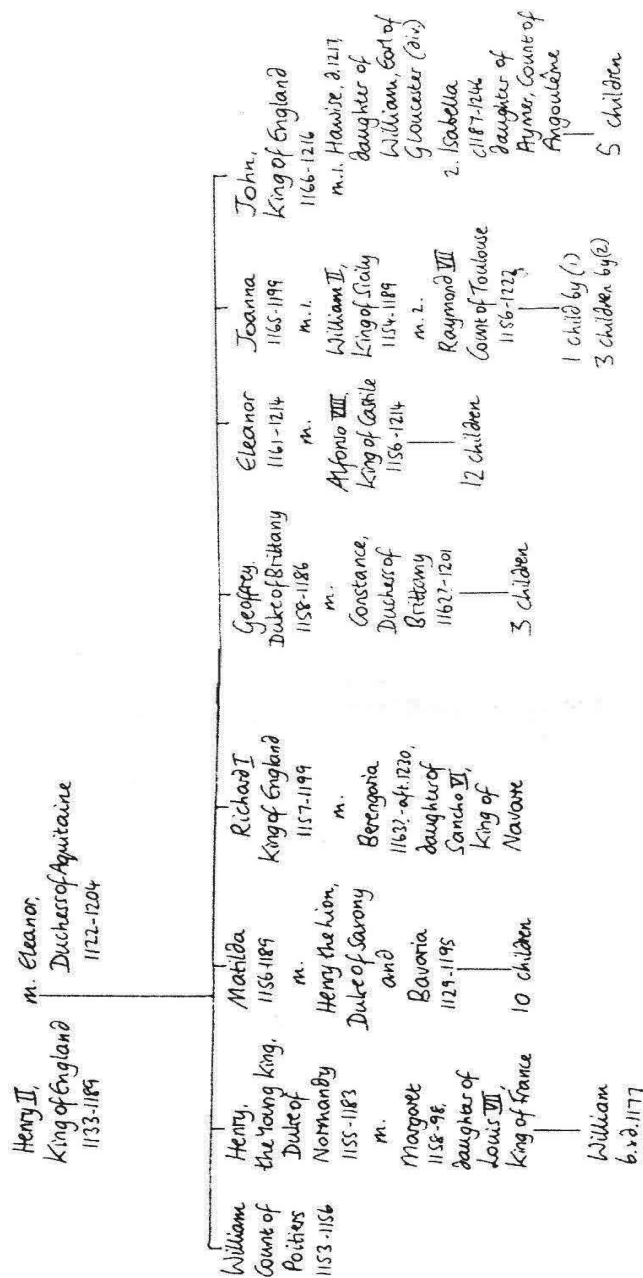 Henry II,
King of England
1133-1189
m. Eleanor,
Duchess of Aquitaine
1122-1204
William
Count of
Poitiers
1153-1156
Henry,
the Young King,
Duke of
Normandy
1155-1183
m.
Margaret
1158-98,
daughter of
Louis VII,
King of France
William
b.&d.1177
Matilda
1156-1189
m.
Henry the Lion,
Duke of Saxony
and
Bavaria
1129-1195
10 children
Richard I
King of England
1157-1199
m.
Berengaria
1163?-aft.1230,
daughter of
Sancho VI,
King of
Navarre
Geoffrey,
Duke of Brittany
1158-1186
m.
Constance,
Duchess of
Brittany
1162?-1201
3 children
Eleanor
1161-1214
m.
Alfonso VIII,
King of Castile
1156-1214
12 children
Joanna
1165-1199
m.1.
William II,
King of Sicily
1154-1189
m.2.
Raymond VII
Count of Toulouse
1156-1222
1 child by (1)
3 children by (2)
John,
King of England
1166-1216
m.1. Hawise, d.1217,
daughter of
William, Earl of
Gloucester (div.)
2. Isabella
c1187-1246
daughter of
Aymer, Count of
Angoulême
5 children